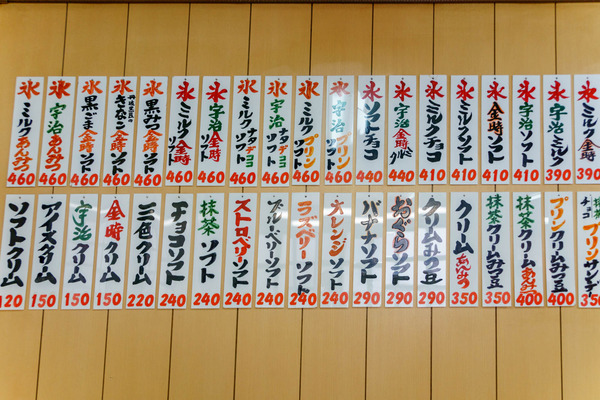 氷 ミルクあんみつ 460
氷 宇治あんみつ 460
氷 黒ごま金時ソフト 460
氷 きなこ金時ソフト 460
氷 黒みつ金時ソフト 460
氷 ミルク金時ソフト 460
氷 宇治金時ソフト 460
氷 ミルクソフトナタデココ 460
氷 宇治ソフトナタデココ 460
氷 ミルクプリンソフト 460
氷 宇治プリンソフト 460
氷 ソフトチョコ 440
氷 宇治金時ミルク 440
氷 ミルクチョコ 410
氷 ミルクソフト 410
氷 金時ソフト 410
氷 宇治ソフト 410
氷 宇治ミルク 390
氷 ミルク金時 390
ソフトクリーム 120
アイスクリーム 150
宇治クリーム 150
金時クリーム 150
三色クリーム 220
チョコソフト 240
抹茶ソフト 240
ストロベリーソフト 240
ブルーベリーソフト 240
ラズベリーソフト 240
オレンジソフト 240
バナナソフト 290
おぐらソフト 290
クリームみつ豆 290
クリームあんみつ 350
抹茶クリームみつ豆 350
抹茶クリームあんみつ 400
プリンクリームみつ豆 400
チョコプリンサンデー 350